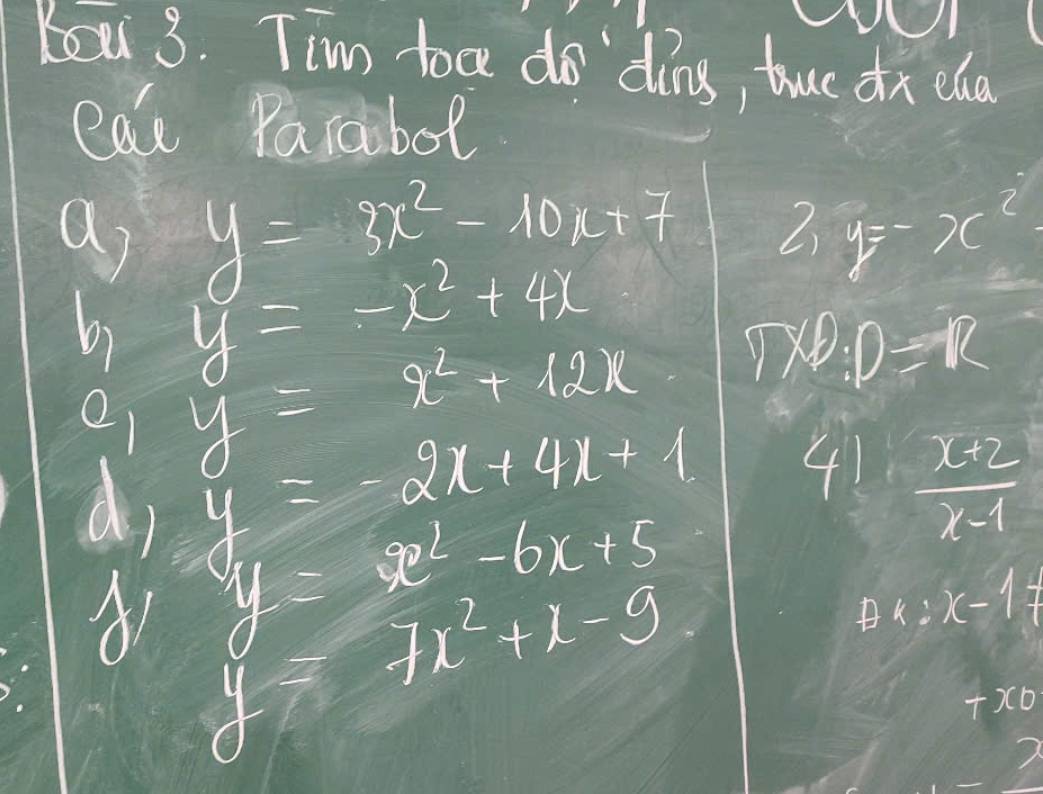 Bài 3. Tìm toạ độ đỉnh, trục đx của
các Parabol
a, y = 3x² - 10x + 7
b, y = -x² + 4x
c, y = x² + 12x
d, y = -2x + 4x + 1
y = x² - 6x + 5
f, y = 7x² + x - 9
2, y = -x²
TXĐ: D = R
4) x+2
x-1
ĐK: x - 1 ≠
+ x